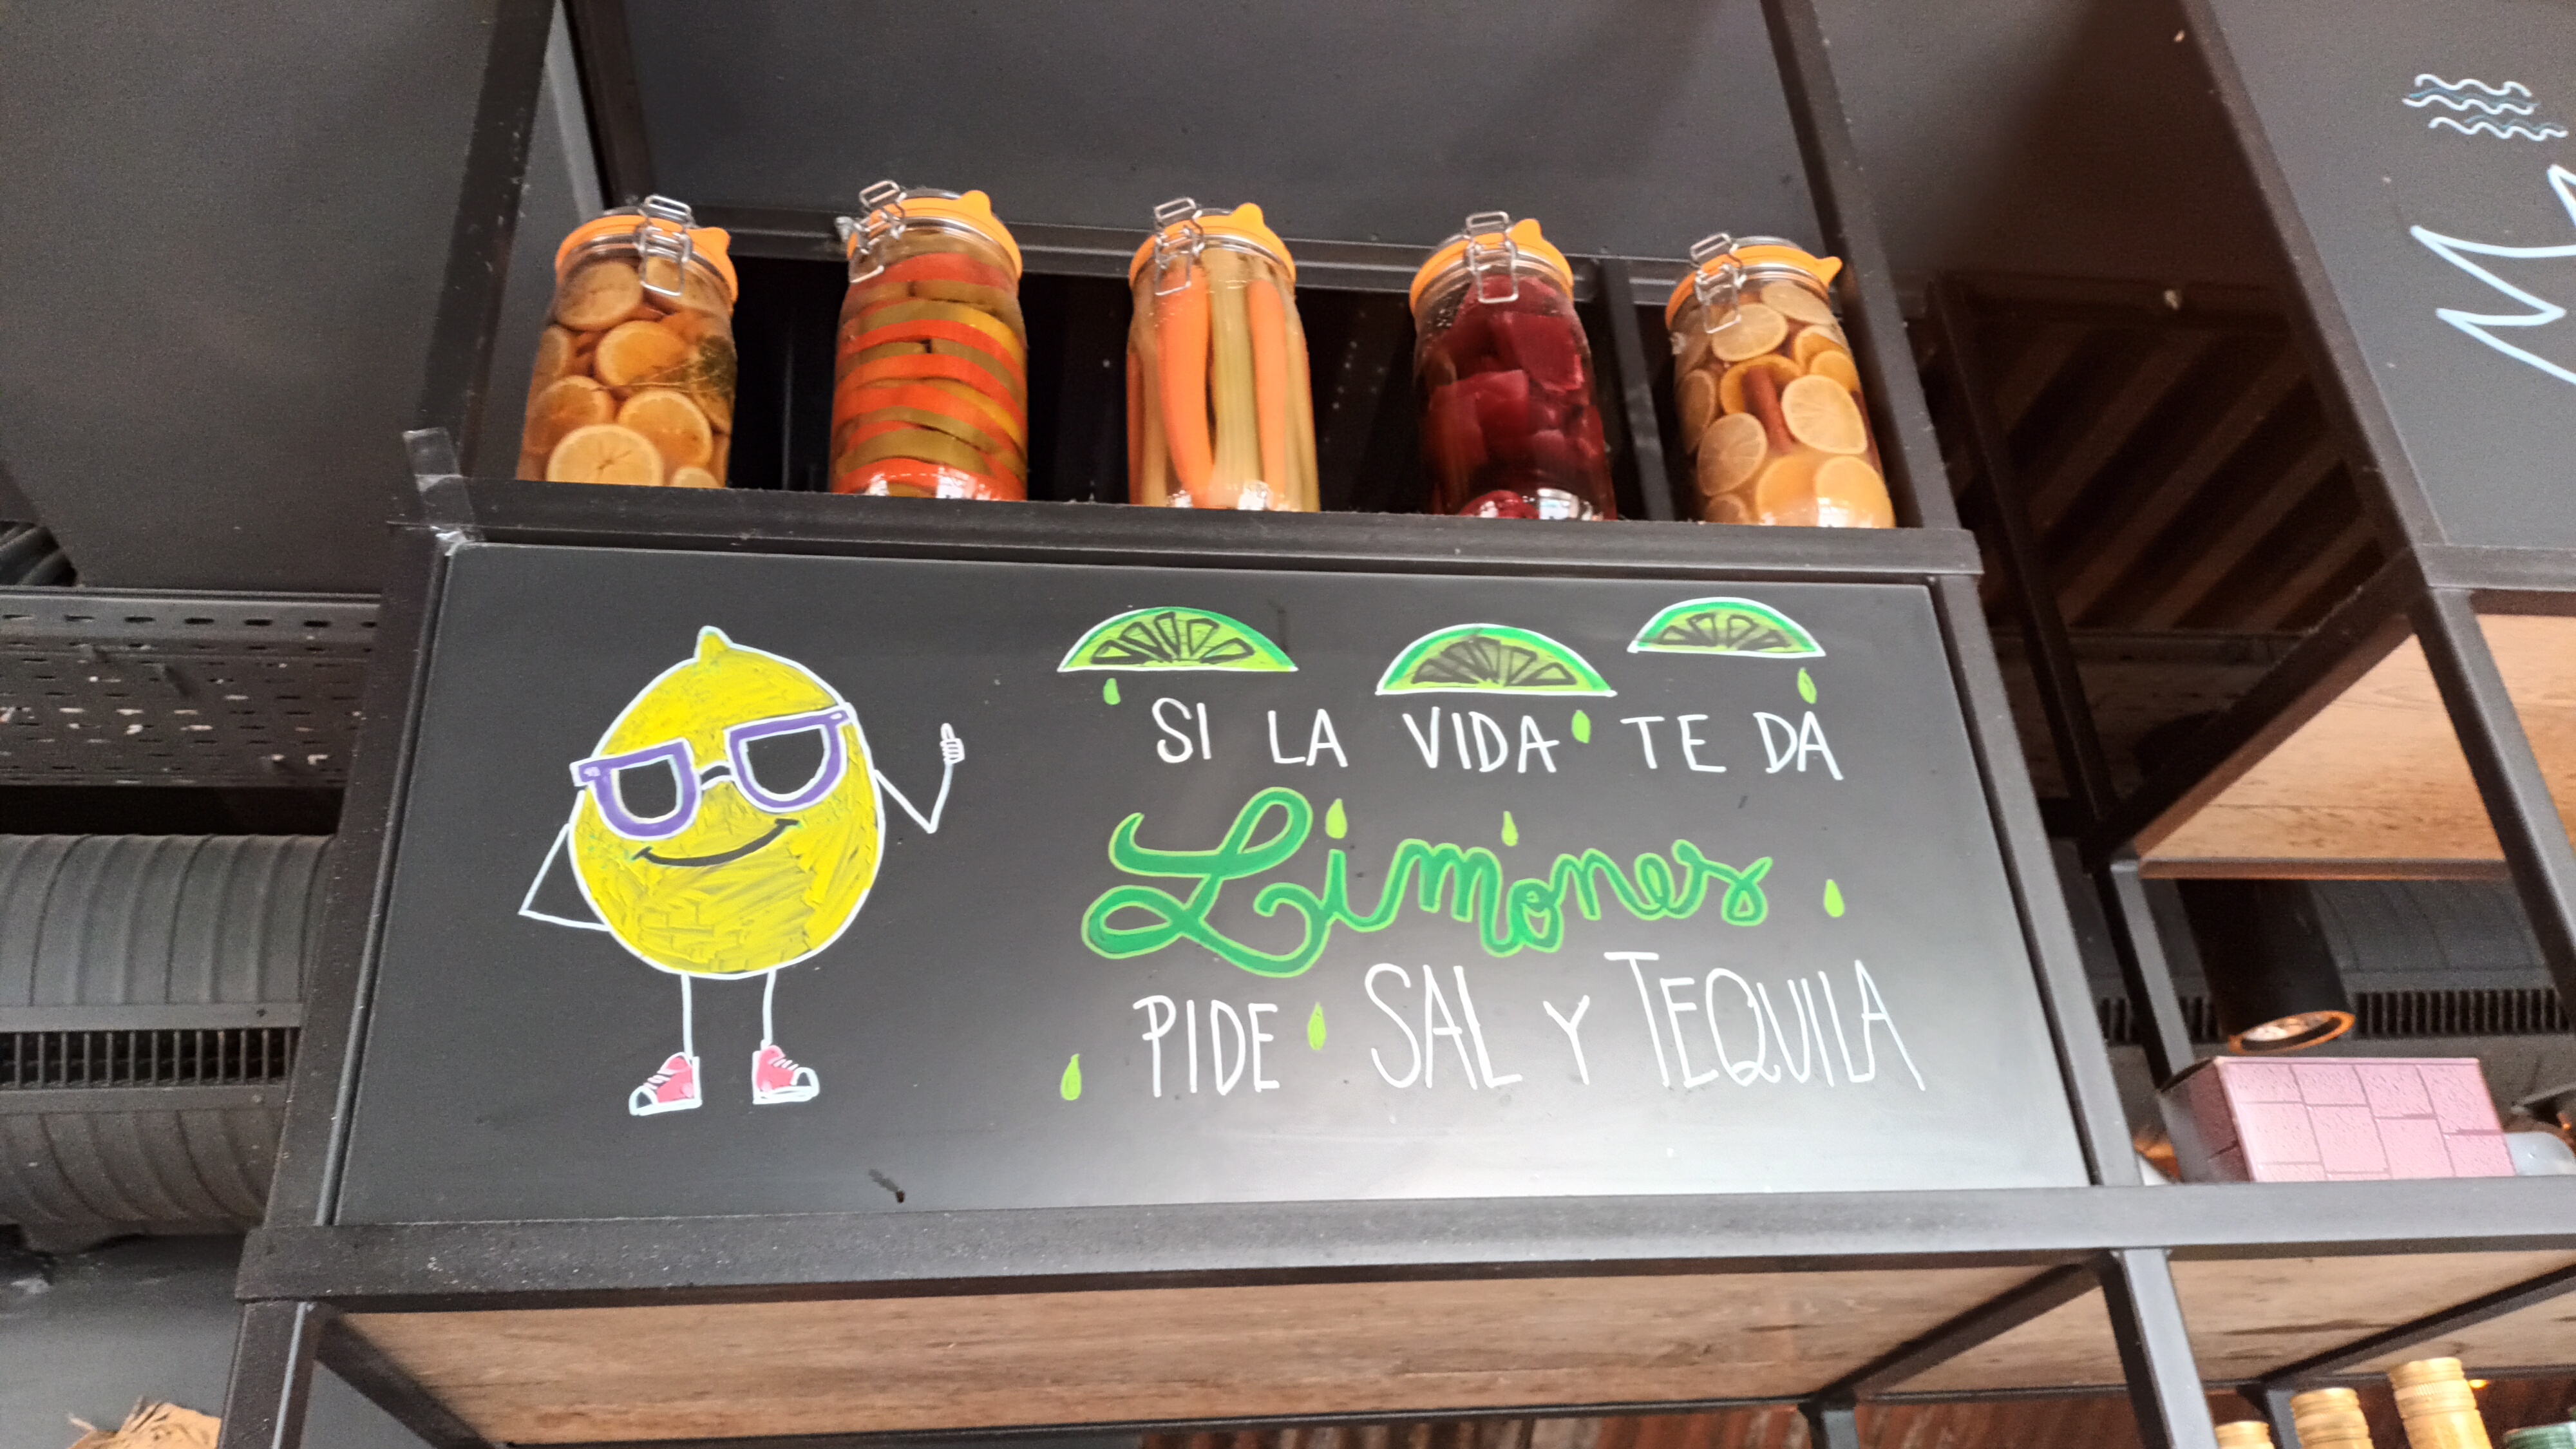 SI LA VIDA TE DA
Limones
PIDE SAL Y TEQUILA